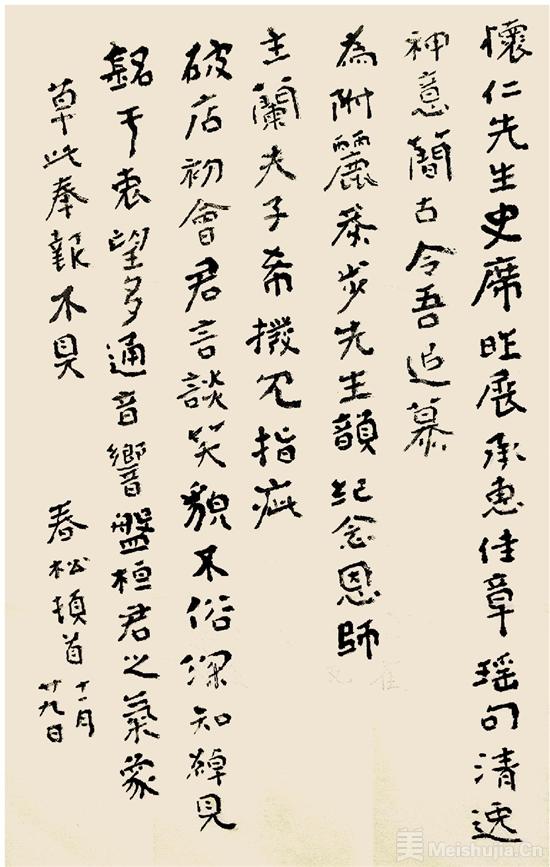 懷仁先生史席昨展承惠佳章瑶句清逸
神意簡古令吾追慕
為附麗恭步先生韻紀念恩師
主蘭夫子希撥冗指疵
破店初會君言談笑貌不俗深知綽見
銘于衷望多通音響盤桓君之氣象
草此奉報不具
春松頓首十一月
廿九日
美 Meishujia.Cn